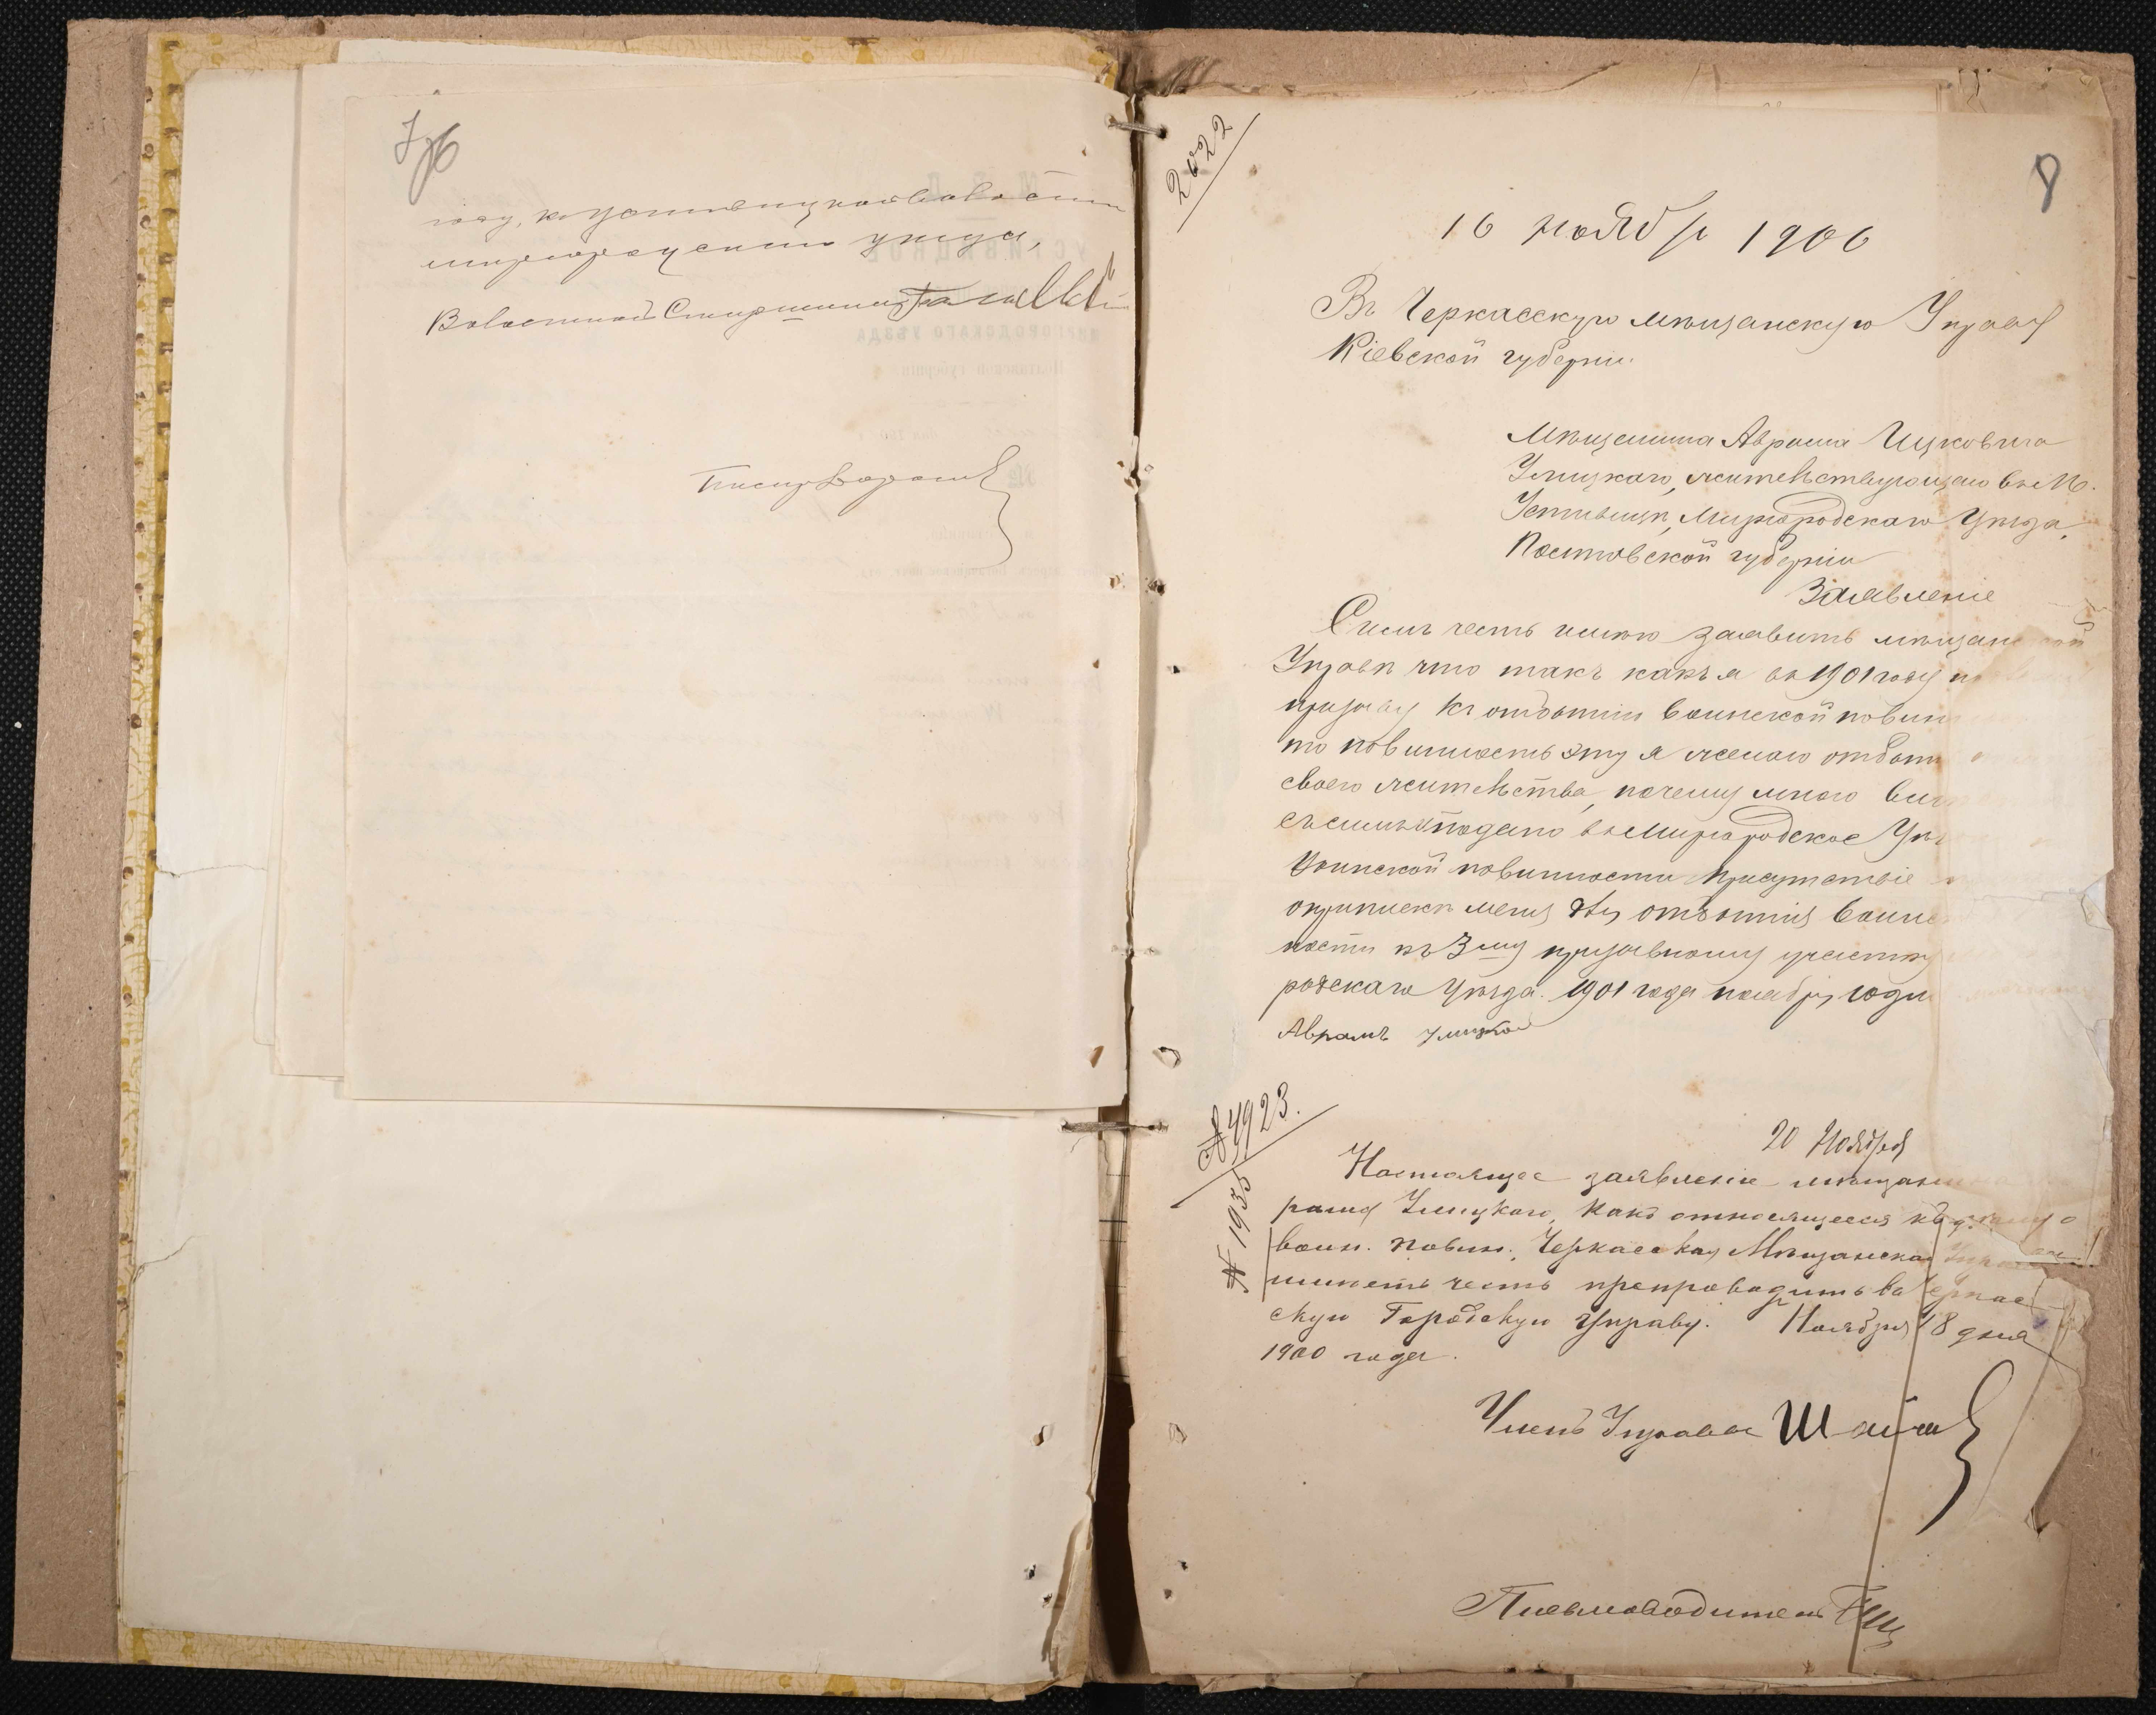 году, к Устивицкой волости
миргородскаго уезда,
Волостной Старшина
Писарь
2022
8
16 ноября 1900
Въ Черкасскую мѣщанскую Управу
Кіевской губерніи.
Мѣщанина Аврама Ицковича
Улицкаго, жительствующаго въ М.
Устивицѣ, Миргородскаго уѣзда,
Полтавской губерніи
Заявленіе
Симъ честь имѣю заявить мѣщанской
Управѣ что такъ какъ я въ 1901 году
призыву къ отбытію воинской повин
то повинность эту я желаю отбыть
своего жительства, почему мною
съ симъ подано въ Миргородское
Воинской повинности Присутствіе
о припискѣ меня для отбытія воинс
ности къ 3му призывному участку
родскаго уѣзда. 1901 года ноября
Аврамъ Улицкой
№ 4923.
№ 1935
20 Ноября
Настоящее заявленіе мѣщанина
рама Улицкаго, какъ относящееся къ
воин. повин., Черкасская Мѣщанская
имѣетъ честь препроводить въ Черкас
скую Городскую Управу. Ноября 18 дня
1900 года.
Членъ Управы
Письмоводитель